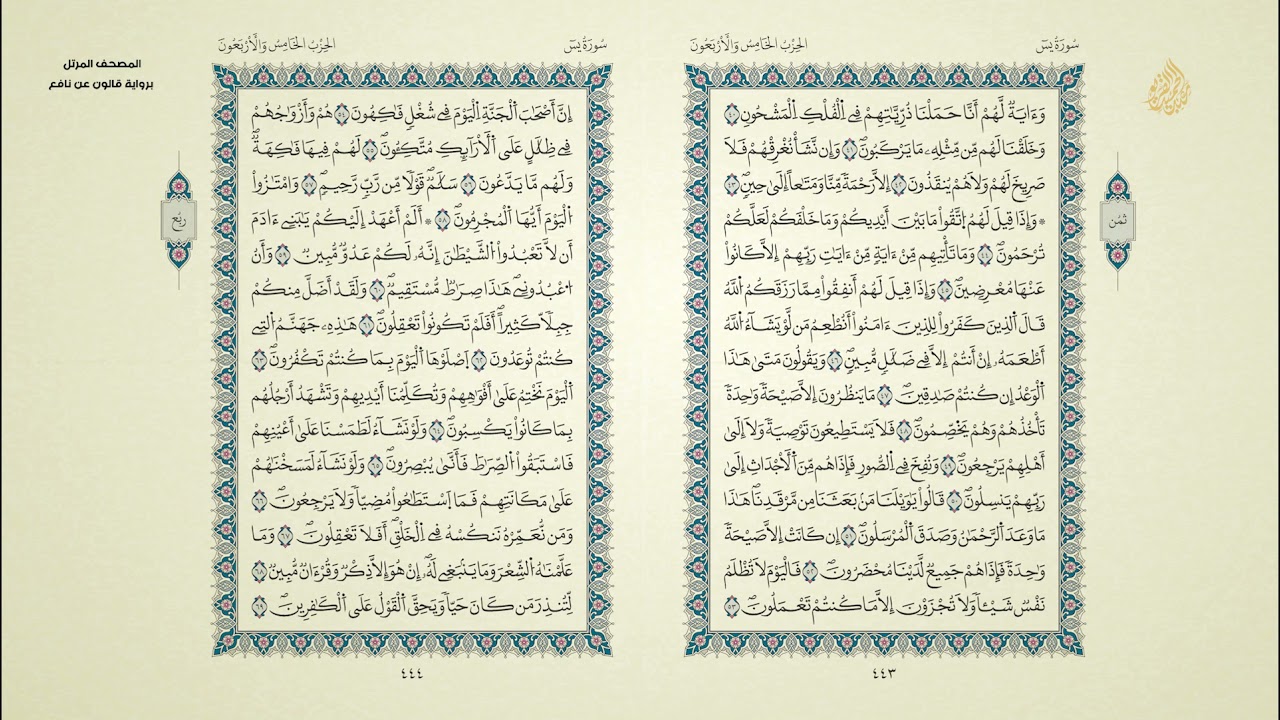 المصحف المرتل
برواية قالون عن نافع
سُورَةُ يسٓ
الحِزْبُ الخَامِسُ وَالأَرْبَعُونَ
وَءَايَةٌ لَّهُمْ أَنَّا حَمَلْنَا ذُرِّيَّٰتِهِمْ فِي اِ۬لْفُلْكِ اِ۬لْمَشْحُونِ ٤٠
وَخَلَقْنَا لَهُم مِّن مِّثْلِهِۦ مَا يَرْكَبُونَ ٤١ وَإِن نَّشَأْ نُغْرِقْهُمْ فَلَا
صَرِيخَ لَهُمْ وَلَا هُمْ يُنقَذُونَ ٤٢ إِلَّا رَحْمَةً مِّنَّا وَمَتَٰعاً إِلَىٰ حِينٍ ٤٣
* وَإِذَا قِيلَ لَهُمُ اُ۪تَّقُواْ مَا بَيْنَ أَيْدِيكُمْ وَمَا خَلْفَكُمْ لَعَلَّكُمْ
تُرْحَمُونَ ٤٤ وَمَا تَأْتِيهِم مِّنْ ءَايَةٍ مِّنْ ءَايَٰتِ رَبِّهِمْ إِلَّا كَانُواْ
عَنْهَا مُعْرِضِينَ ٤٥ وَإِذَا قِيلَ لَهُمْ أَنفِقُواْ مِمَّا رَزَقَكُمُ اُ۬للَّهُ
قَالَ اَ۬لذِينَ كَفَرُواْ لِلذِينَ ءَامَنُواْ أَنُطْعِمُ مَن لَّوْ يَشَآءُ اُ۬للَّهُ
أَطْعَمَهُۥ إِنْ أَنتُمْ إِلَّا فِي ضَلَٰلٍ مُّبِينٍ ٤٦ وَيَقُولُونَ مَتَىٰ هَٰذَا
اَ۬لْوَعْدُ إِن كُنتُمْ صَٰدِقِينَ ٤٧ مَا يَنظُرُونَ إِلَّا صَيْحَةً وَٰحِدَةً
تَأْخُذُهُمْ وَهُمْ يَخْصِّمُونَ ٤٨ فَلَا يَسْتَطِيعُونَ تَوْصِيَةً وَلَا إِلَىٰ
أَهْلِهِمْ يَرْجِعُونَ ٤٩ وَنُفِخَ فِي اِ۬لصُّورِ فَإِذَا هُم مِّنَ اَ۬لْأَجْدَاثِ إِلَىٰ
رَبِّهِمْ يَنسِلُونَ ٥٠ قَالُواْ يَٰوَيْلَنَا مَنۢ بَعَثَنَا مِن مَّرْقَدِنَا هَٰذَا
مَا وَعَدَ اَ۬لرَّحْمَٰنُ وَصَدَقَ اَ۬لْمُرْسَلُونَ ٥١ إِن كَانَتْ إِلَّا صَيْحَةً
وَٰحِدَةً فَإِذَا هُمْ جَمِيعٌ لَّدَيْنَا مُحْضَرُونَ ٥٢ فَالْيَوْمَ لَا تُظْلَمُ
نَفْسٌ شَيْـٔاً وَلَا تُجْزَوْنَ إِلَّا مَا كُنتُمْ تَعْمَلُونَ ٥٣
ثُمُن
٤٤٣
سُورَةُ يسٓ
الحِزْبُ الخَامِسُ وَالأَرْبَعُونَ
إِنَّ أَصْحَٰبَ اَ۬لْجَنَّةِ اِ۬لْيَوْمَ فِي شُغْلٍ فَٰكِهُونَ ٥٤ هُمْ وَأَزْوَٰجُهُمْ
فِي ظِلَٰلٍ عَلَى اَ۬لْأَرَآئِكِ مُتَّكِـُٔونَ ٥٥ لَهُمْ فِيهَا فَٰكِهَةٌ
وَلَهُم مَّا يَدَّعُونَ ٥٦ سَلَٰمٌ قَوْلاً مِّن رَّبٍّ رَّحِيمٍ ٥٧ وَامْتَٰزُواْ
اُ۬لْيَوْمَ أَيُّهَا اَ۬لْمُجْرِمُونَ ٥٨ * أَلَمْ أَعْهَدْ إِلَيْكُمْ يَٰبَنِي ءَادَمَ
أَن لَّا تَعْبُدُواْ اُ۬لشَّيْطَٰنَ إِنَّهُۥ لَكُمْ عَدُوٌّ مُّبِينٌ ٥٩ وَأَنُ
اُ۟عْبُدُونِي هَٰذَا صِرَٰطٌ مُّسْتَقِيمٌ ٦٠ وَلَقَدْ أَضَلَّ مِنكُمْ
جِبِلّاً كَثِيراً أَفَلَمْ تَكُونُواْ تَعْقِلُونَ ٦١ هَٰذِهِۦ جَهَنَّمُ اُ۬لتِي
كُنتُمْ تُوعَدُونَ ٦٢ اَ۪صْلَوْهَا اَ۬لْيَوْمَ بِمَا كُنتُمْ تَكْفُرُونَ ٦٣
اَ۬لْيَوْمَ نَخْتِمُ عَلَىٰ أَفْوَٰهِهِمْ وَتُكَلِّمُنَا أَيْدِيهِمْ وَتَشْهَدُ أَرْجُلُهُم
بِمَا كَانُواْ يَكْسِبُونَ ٦٤ وَلَوْ نَشَآءُ لَطَمَسْنَا عَلَىٰ أَعْيُنِهِمْ
فَاسْتَبَقُواْ اُ۬لصِّرَٰطَ فَأَنَّىٰ يُبْصِرُونَ ٦٥ وَلَوْ نَشَآءُ لَمَسَخْنَٰهُمْ
عَلَىٰ مَكَانَتِهِمْ فَمَا اَ۪سْتَطَٰعُواْ مُضِيّاً وَلَا يَرْجِعُونَ ٦٦
وَمَن نُّعَمِّرْهُ نَنكُسْهُ فِي اِ۬لْخَلْقِ أَفَلَا تَعْقِلُونَ ٦٧ وَمَا
عَلَّمْنَٰهُ اُ۬لشِّعْرَ وَمَا يَنۢبَغِي لَهُۥ إِنْ هُوَ إِلَّا ذِكْرٌ وَقُرْءَانٌ مُّبِينٌ ٦٨
لِّتُنذِرَ مَن كَانَ حَيّاً وَيَحِقَّ اَ۬لْقَوْلُ عَلَى اَ۬لْكٰفِرِينَ ٦٩
رُبُع
٤٤٤